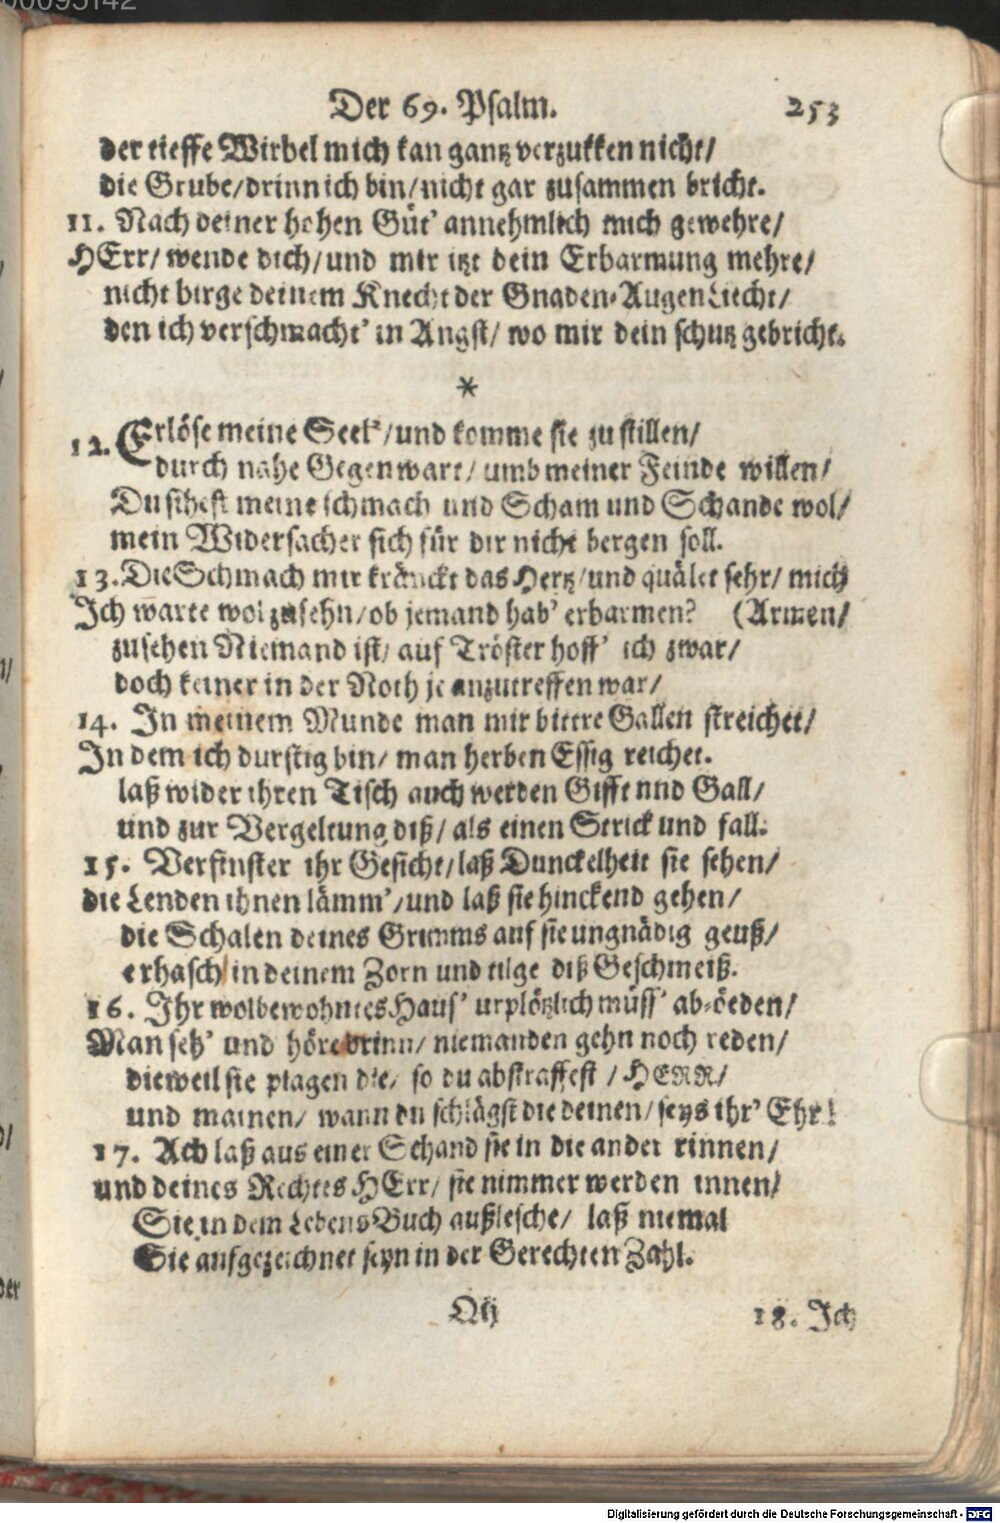 00095142
Der 69. Psalm. 253
der tieffe Wirbel mich kan gantz verzukken nicht/
die Grube/drinn ich bin/nicht gar zusammen bricht.
11. Nach deiner hohen Güt' annehmlich mich gewehre/
HErr/ wende dich/und mir itzt dein Erbarmung mehre/
nicht birge deinem Knecht der Gnaden-Augen Liecht/
den ich verschmacht' in Angst/ wo mir dein schutz gebricht.
*
12. Erlöse meine Seel'/und komme sie zu stillen/
durch nahe Gegenwart/ umb meiner Feinde willen/
Du sihest meine schmach und Scham und Schande wol/
mein Widersacher sich für dir nicht bergen soll.
13. Die Schmach mir kränckt das Hertz/und quälet sehr/ mich
Ich warte wol zusehn/ob jemand hab' erbarmen? (Armen/
zusehen Niemand ist/ auf Tröster hoff' ich zwar/
doch keiner in der Noth je anzutreffen war/
14. In meinem Munde man mir bittre Gallen streichet/
In dem ich durstig bin/ man herben Essig reichet.
laß wider ihren Tisch auch werden Gifft nnd Gall/
und zur Vergeltung diß/ als einen Strick und fall.
15. Verfinster ihr Gesicht/laß Dunckelheit sie sehen/
die Lenden ihnen lämm'/und laß sie hinckend gehen/
die Schalen deines Grimms auf sie ungnädig geuß/
erhasch/in deinem Zorn und tilge diß Geschmeiß.
16. Ihr wolbewohntes Haus' urplötzlich müss' ab-öeden/
Man seh' und höre drinn/ niemanden gehn noch reden/
dieweil sie plagen die/ so du abstraffest/HERR/
und mainen/ wann du schlägst die deinen/seys ihr' Ehr!
17. Ach laß aus einer Schand sie in die ander rinnen/
und deines Rechtes HErr/ sie nimmer werden innen/
Sie in dem Lebens Buch außlesche/ laß niemal
Sie aufgezeichnet seyn in der Gerechten Zahl.
Qq 18. Ich
Digitalisierung gefördert durch die Deutsche Forschungsgemeinschaft - DFG